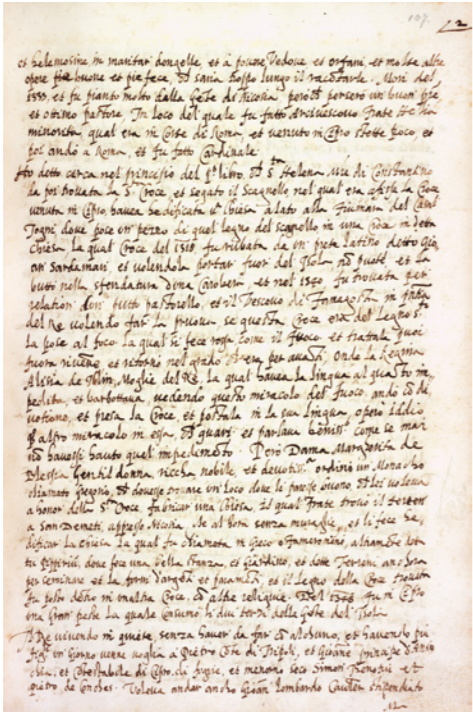 107. 2
et helemosine in maritar dongelle, et à povere Vedove et orfani, et molte altre
opere pie buone et pie fece, saria troppo lungo il racontarle. Morì del
et fu pianto molto dalla Gente di Nicosia però persero un buon pre
et ottimo pastore. In loco del quale fu fatto Arcivescovo Frate Helia
minorita, qual era in Corte de Roma, et venuto in Cipro stette poco, et
poi andò a Roma, et fu fatto Cardinale.
Ho detto cerca nel principio del p.º libro, S. Helena M.re di Constantino
la poi trovata la S. Croce, et segato il Scagnello nel qual era la Croce
venuta in Cipro, havea hedificata Chiesa à lato alla fiumara del Casal
Togni dove pose un pezzo di quel legno del scagnello in una Croce in detta
Chiesa, la qual Croce del 1318 fu rubata da un prete latino detto Gio
an Sardamari, et volendola portar fuor del Isola no puote, et la
buttò nella sfenditura d'una Carobera, et nel 1340 fu trovata per
relation d'un putto pastorello, et il Vescovo di Famagosta in
del Re volendo far la pruova, se questa Croce era del legno S.to
la pose al foco la qual si fece rossa come il fuoco, et tratala fuori
et ritornò nel grado era per avanti. Onde la Regina
Alisia de Iblin, Moglie del Re, la qual havea la lingua alquanto im
pedita, et barbottava, vedendo questo miracolo del fuoco, andò cō di
votione, et presa la Croce, et postala in la sua lingua, operò Iddio
altro miracolo in essa, guarì et parlava beniss.º come se mai
nō havessi havuto qual impedimento. Però Dama Margarita de
Blessia Gentil donna, riccha, nobile, et devotiss.ª ordinò un Monacho
chiamato Gregorio, dovesse trovare un loco dove li paresse buono, lei voleva
a honor della S. Croce fabricar una Chiesa. Il qual Frate trovò il terren
a San Demeti, appresso Nicosia, senza muraglie, et li fece he
dificar la Chiesa la qual fu chiamata in Greco o Fameromeni,
dove fece una bella stanza, et Giardino, et dette Terreni anchora
per seminare et la fornì d'argenti et paramenti, et il legno della Croce trovata
fu posto detto in un'altra Croce, altre reliquie. Del 1348 fu in Cipro
una Gran peste la quale consumò li dui terzi della Gente del Isola
Il Re vivendo in quiete, senza haver da far cō alchuno, et havendo più
figli un Giorno venne voglia a Pietro Conte di Tripoli, et Gioanne Principe d'Antio
chia, et Contestabile di Cipro, di fugir, et menorno seco Simon Thenouri et
Pietro de Conches. Voleva andar ancho Gioan Lombardo Cavalier stipendiato